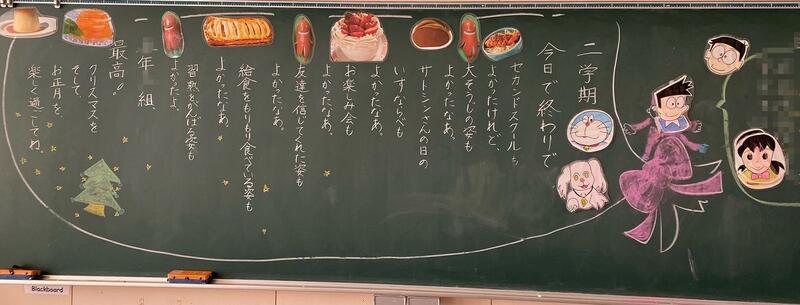 二学期
今日で終わりで
セカンドスクールも
よかったけれど、
大そうじの姿も
よかったなあ。
サトシンさんの日の
いすならべも
よかったなあ。
お楽しみ会も
よかったなあ。
友達を信じてくれた姿も
よかったなあ。
給食をもりもり食べている姿も
よかったなあ。
習熟をがんばる姿も
よかったよ。
一年 組、
最高!
そして、
クリスマスを
お正月を、
楽しく過ごしてね。
Blackboard